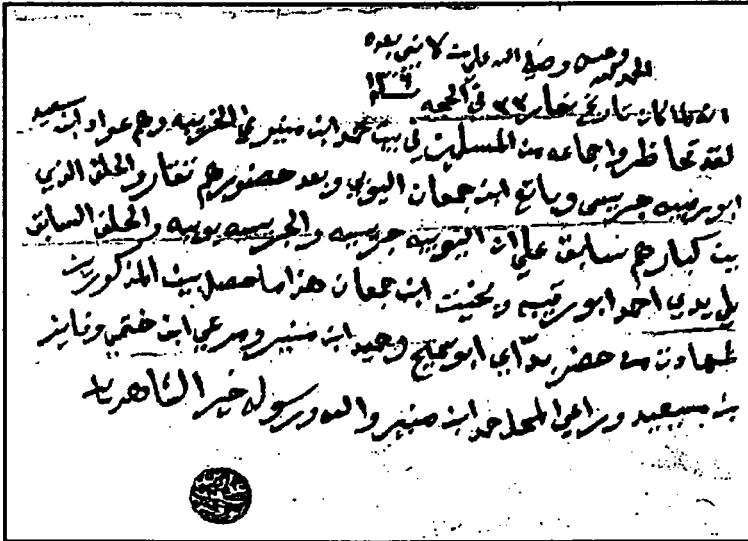 الحمد لله وحده وصلى الله على من لا نبي بعده
١٣٠٩
انه لما كان تاريخ نهار ٢٣ في الحجه
لقد تحاظروا جماعه من المسلمين في بيت محمد ابن منير في الخريبه وهم عواد ابن سعيد
ابو رقيبه جريسي وباتع ابن جمعان اليوبي وبعد حضورهم تقاروا الحلف الذي
بين كبارهم سابق على ان اليوبيه جريسيه والجريسيه يوبيه والحلف السابق
على يدي احمد ابو رقيبه وبخيت ابن جمعان هذا ما حصل بين المذكورين
شهادت من حضر ابو سميح وحميد ابن منير ومرعي ابن ختمي وفايز
بن سعيد وراعي المحل حمد ابن منير والله ورسوله خير الشاهدين